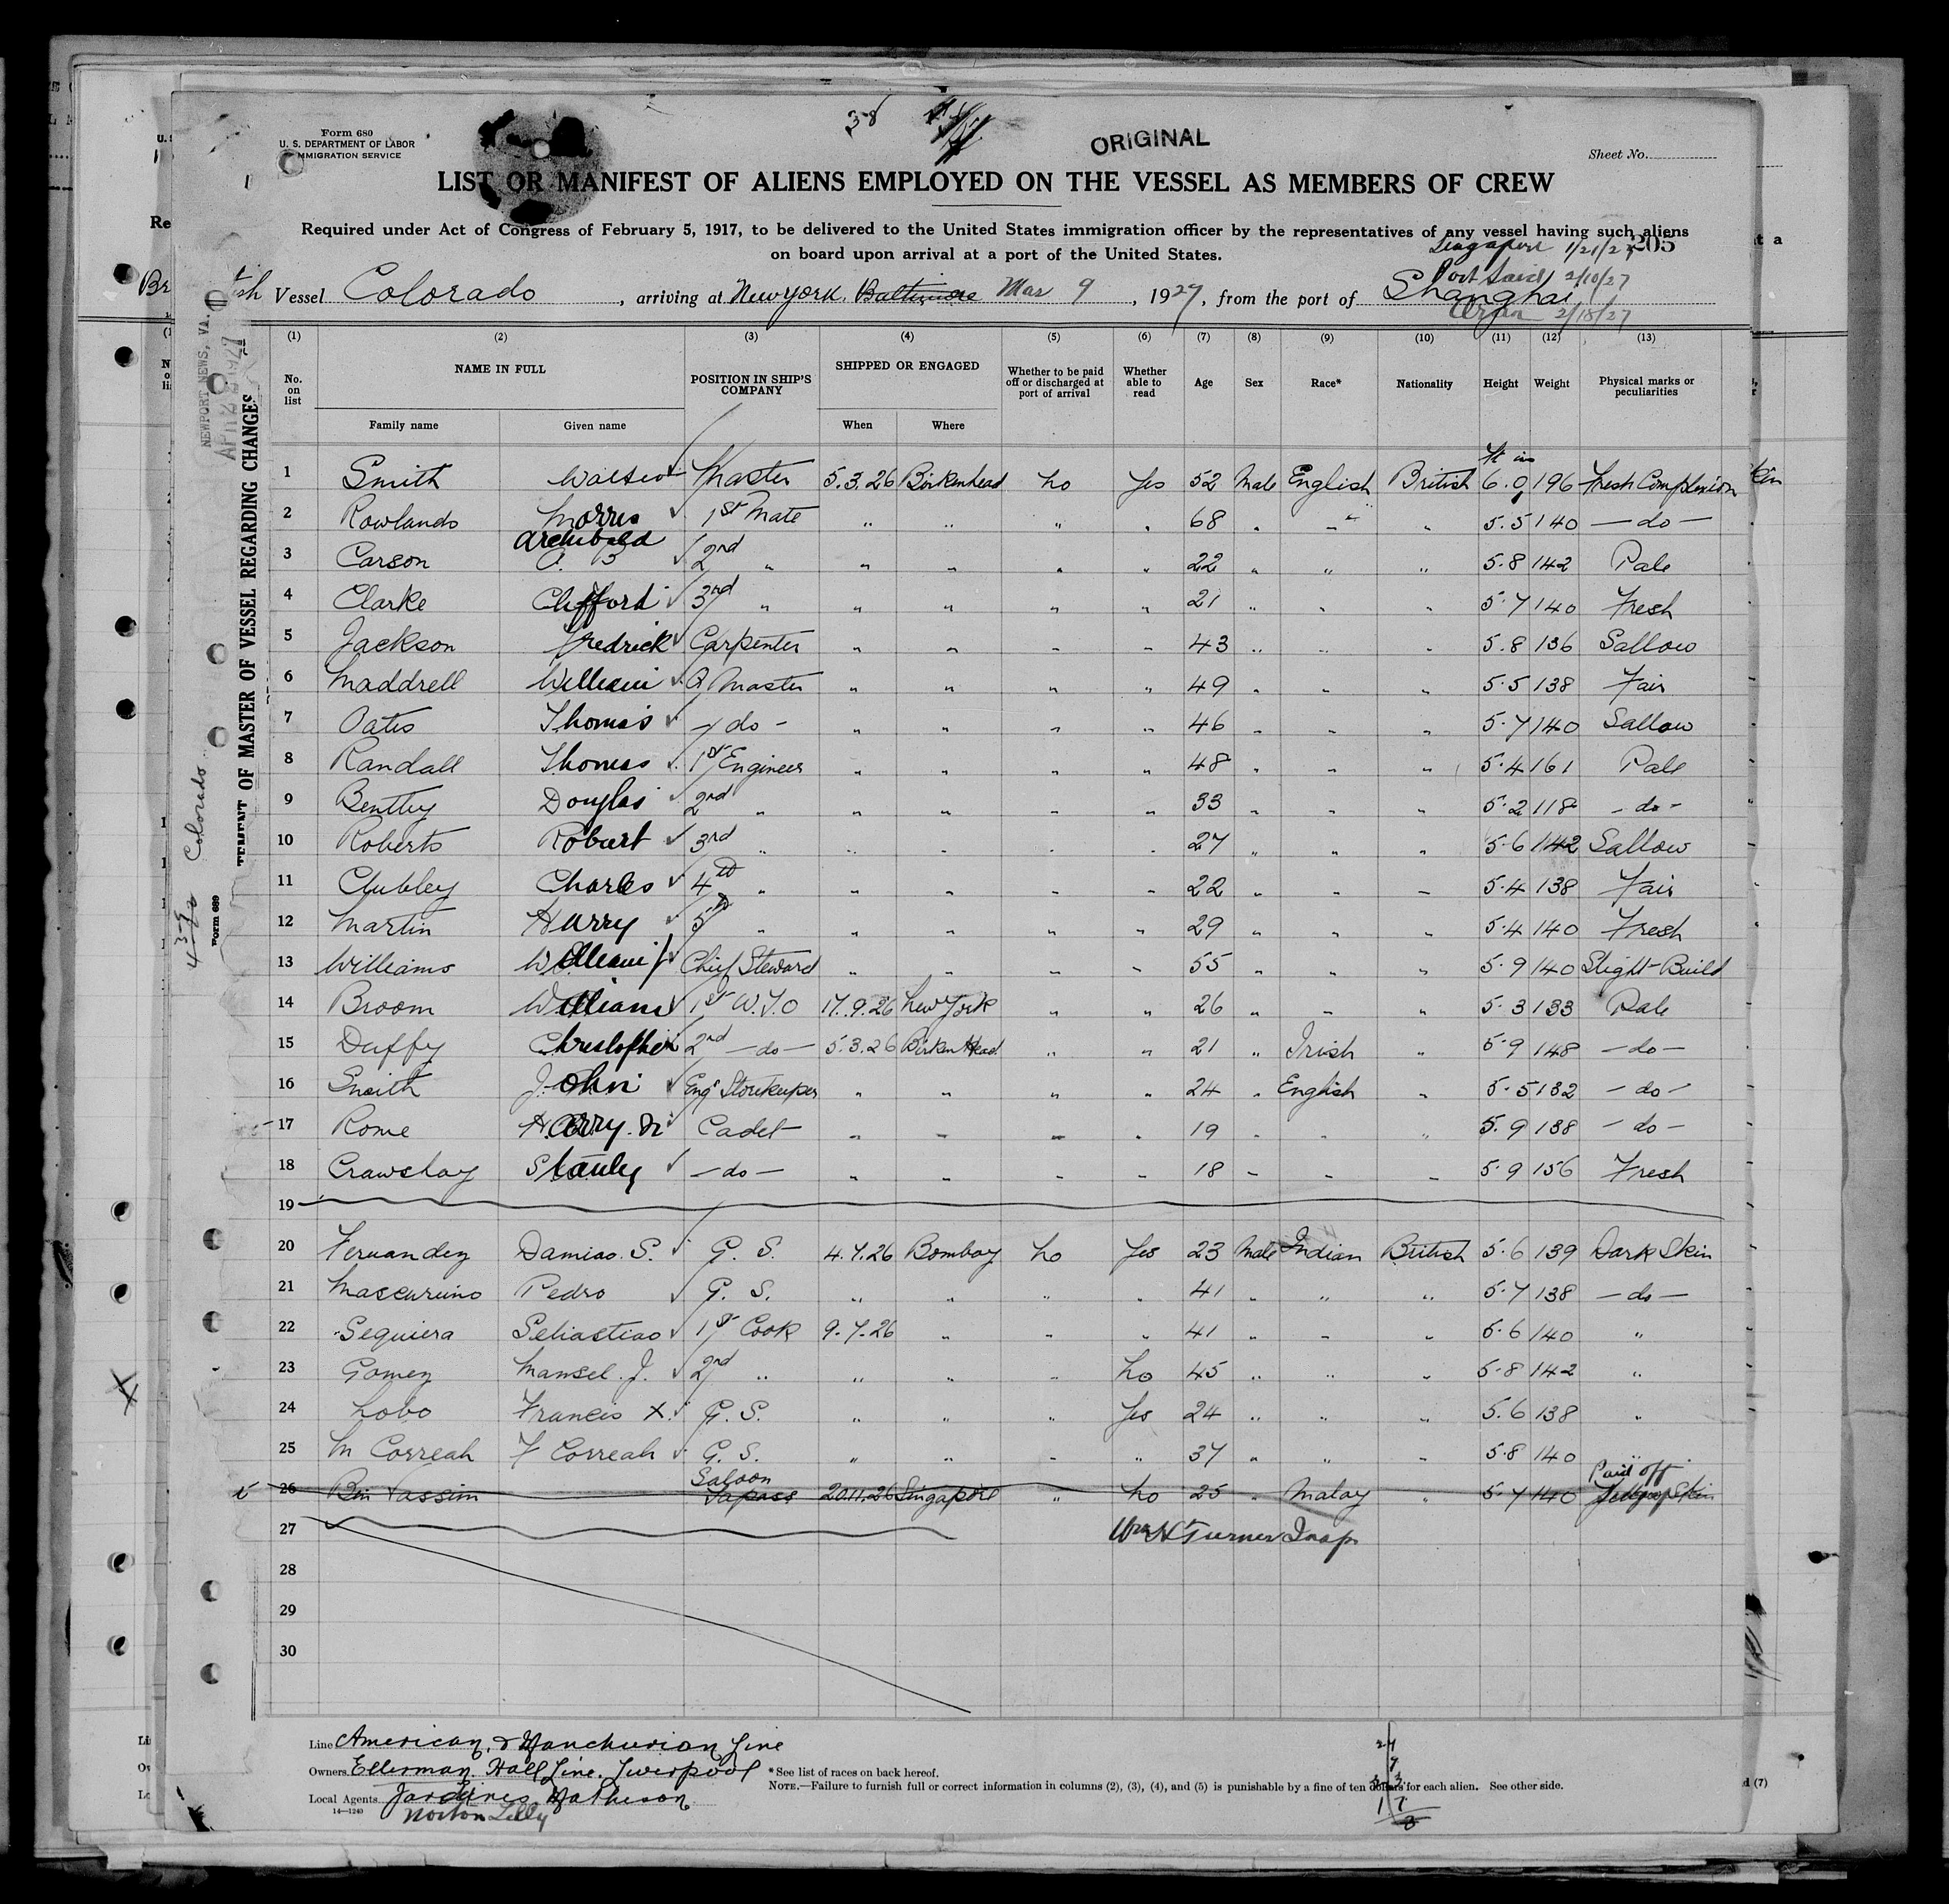 38
ORIGINAL
Form 680
U. S. DEPARTMENT OF LABOR
IMMIGRATION SERVICE
Sheet No.
LIST OR MANIFEST OF ALIENS EMPLOYED ON THE VESSEL AS MEMBERS OF CREW
Required under Act of Congress of February 5, 1917, to be delivered to the United States immigration officer by the representatives of any vessel having such aliens
on board upon arrival at a port of the United States.
Singapore 1/21/27 205
Port Said 2/10/27
Vessel Colorado, arriving at New York, Baltimore Mar 9, 1927, from the port of Shanghai
2/18/27
(1) (2) (3) (4) (5) (6) (7) (8) (9) (10) (11) (12) (13)
No. on list NAME IN FULL POSITION IN SHIP'S COMPANY SHIPPED OR ENGAGED Whether to be paid off or discharged at port of arrival Whether able to read Age Sex Race* Nationality Height Weight Physical marks or peculiarities
Family name Given name When Where
ft in
1 Smith Walter Master 5.3.26 Birkenhead No Yes 52 Male English British 6.0 196 Fresh Complexion
2 Rowlands Morris 1st Mate " " " " 68 " " " 5.5 140 — do —
Archibald
3 Carson A. B 2nd " " " " " 22 " " " 5.8 142 Pale
4 Clarke Clifford 3rd " " " " " 21 " " " 5.7 140 Fresh
5 Jackson Fredrick Carpenter " " " " 43 " " " 5.8 136 Sallow
6 Maddrell William Q Master " " " " 49 " " " 5.5 138 Fair
7 Oates Thomas — do — " " " " 46 " " " 5.7 140 Sallow
8 Randall Thomas 1st Engineer " " " " 48 " " " 5.4 161 Pale
9 Bentley Douglas 2nd " " " " " 33 " " " 5.2 118 — do —
10 Roberts Robert 3rd " " " " " 27 " " " 5.6 142 Sallow
11 Clubley Charles 4th " " " " " 22 " " " 5.4 138 Fair
12 Martin Harry 5th " " " " " 29 " " " 5.4 140 Fresh
13 Williams William Chief Steward " " " " 55 " " " 5.9 140 Slight Build
14 Broom William 1st W.T.O 17.9.26 New York " " 26 " " " 5.3 133 Pale
15 Duffy Christopher 2nd — do — 5.3.26 Birkenhead " " 21 " Irish " 5.9 148 — do —
16 Smith John Engs Storekeeper " " " " 24 " English " 5.5 132 — do —
17 Rome Harry Cadet " " " " 19 " " " 5.9 138 — do —
18 Crawshay Stanley — do — " " " " 18 " " " 5.9 156 Fresh
19
20 Fernandez Damiao. S. G. S. 4.7.26 Bombay No Yes 23 Male Indian British 5.6 139 Dark Skin
21 Mascurino Pedro G. S. " " " " 41 " " " 5.7 138 — do —
22 Sequiera Sebastiao 1st Cook 9.7.26 " " " 41 " " " 5.6 140 "
23 Gomez Mansel. J. 2nd " " " " No 45 " " " 5.8 142 "
24 Lobo Francis X. G. S. " " " Yes 24 " " " 5.6 138 "
25 M Correah F Correah G. S. " " " " 37 " " " 5.8 140 "
Saloon Paid off
26 Bin Yassim Topass 20.11.26 Singapore " No 25 " Malay " 5.7 140 Skin
27 Wm H Turner Insp
28
29
30
Line American & Manchurian Line
Owners Ellerman Hall Line. Liverpool
*See list of races on back hereof.
NOTE.—Failure to furnish full or correct information in columns (2), (3), (4), and (5) is punishable by a fine of ten dollars for each alien. See other side.
Local Agents Jardines Matheson
14—1240
Norton Lilly
NEWPORT NEWS, VA.
STATEMENT OF MASTER OF VESSEL REGARDING CHANGES
Colorado
Form 689